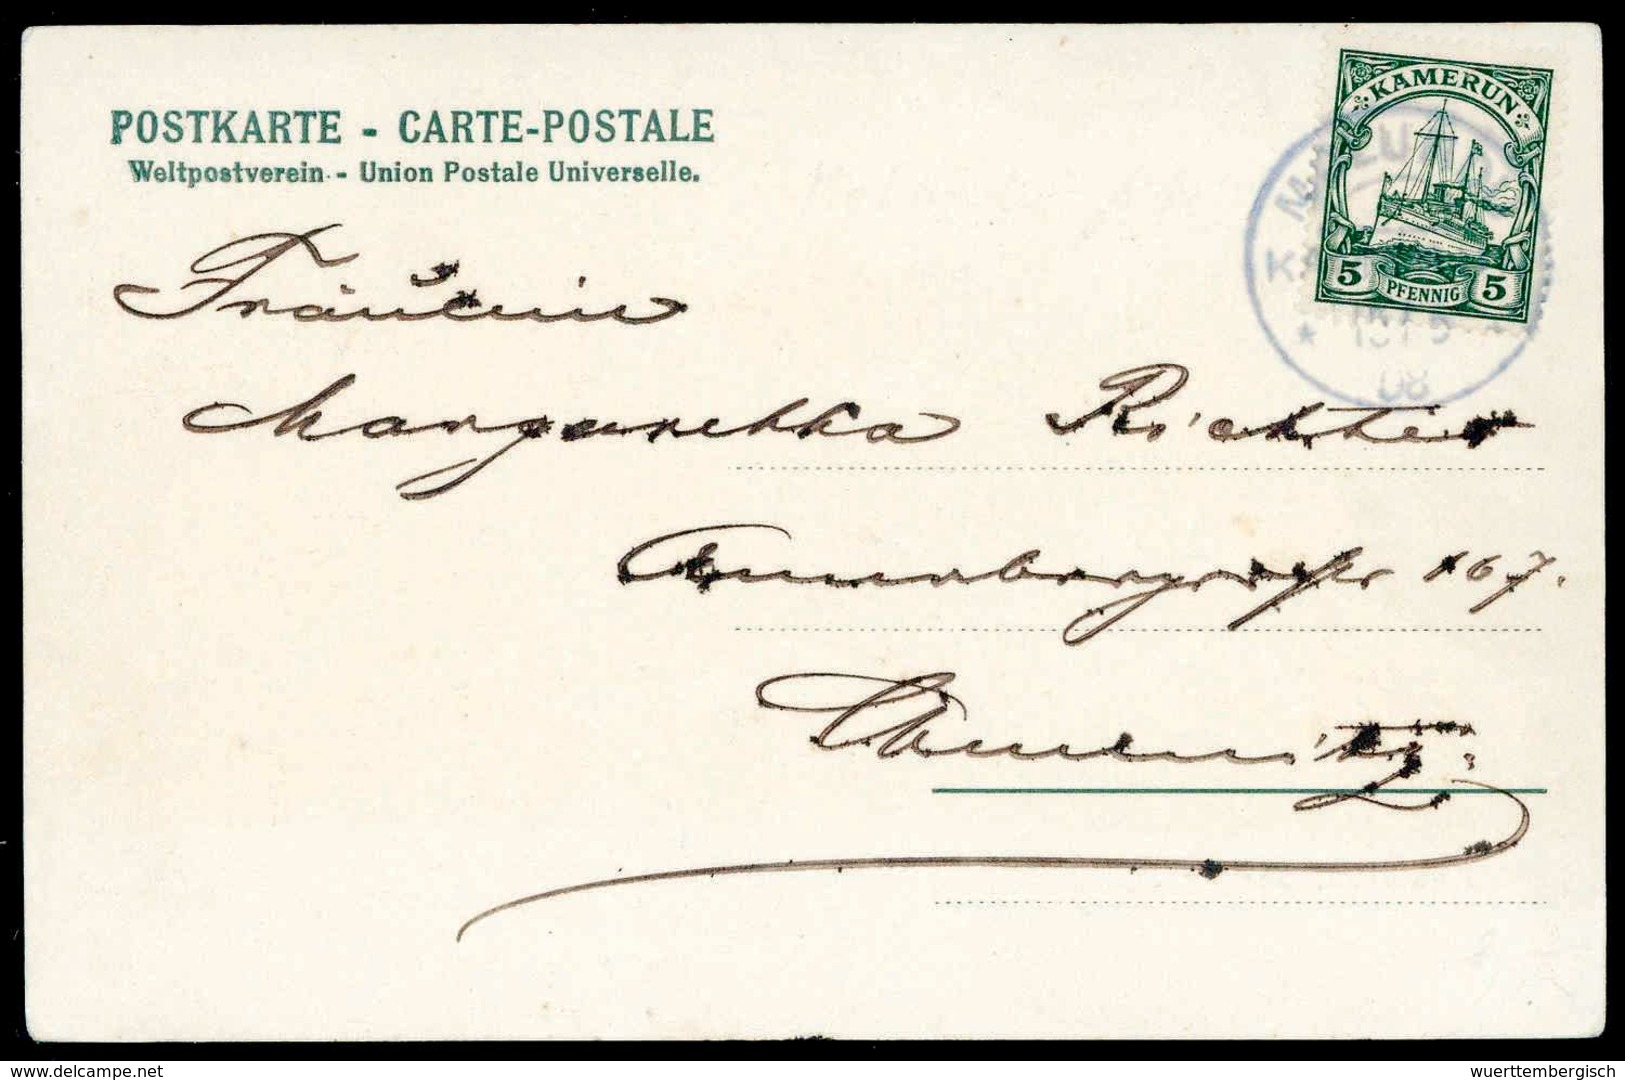 POSTKARTE - CARTE-POSTALE
Weltpostverein - Union Postale Universelle.
KAMERUN
5 PFENNIG 5
08
Fräulein
Margarethka Richter
Annenbergerstr 167.
Chemnitz.
www.delcampe.net
wuerttembergisch